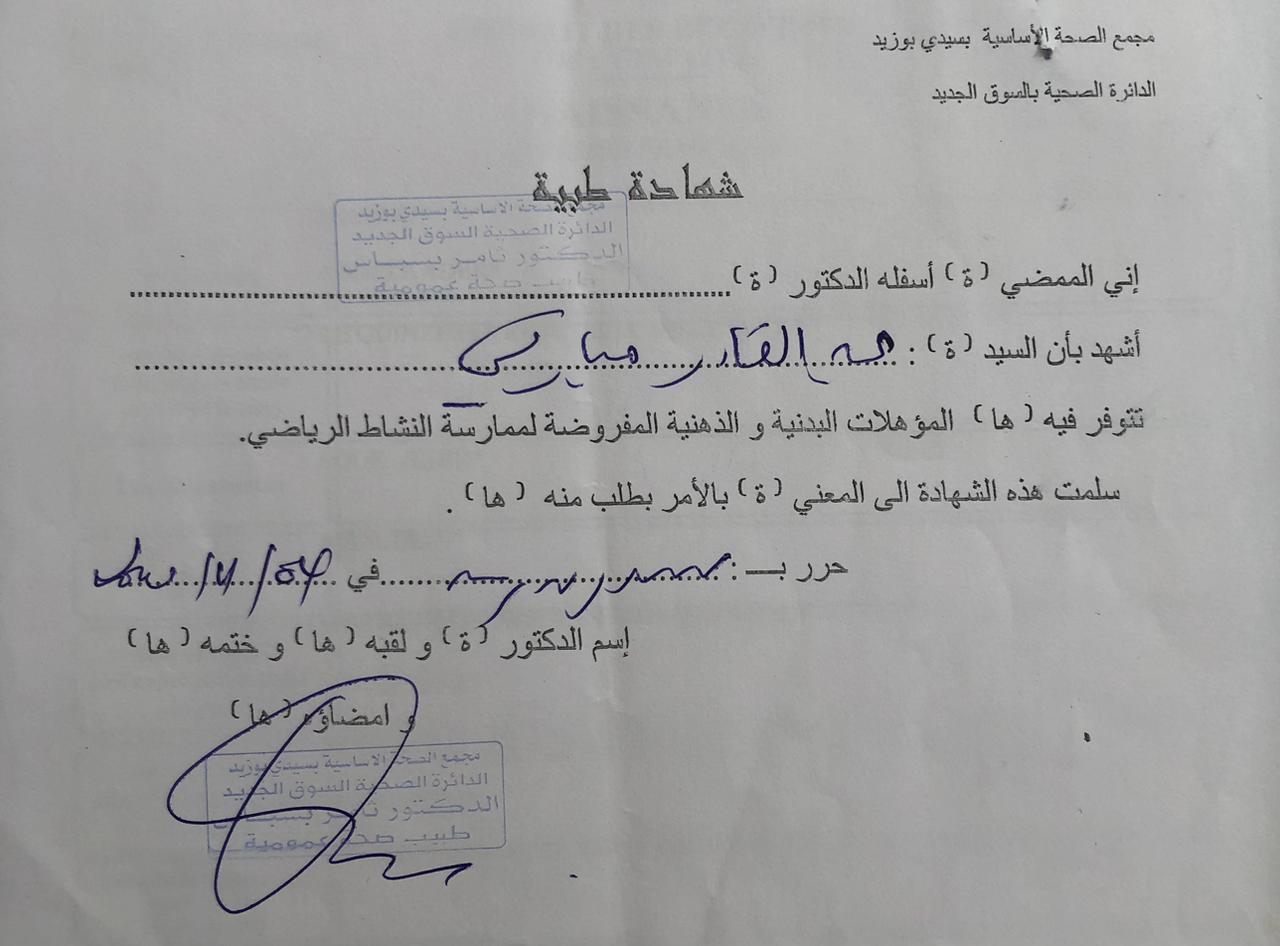 مجمع الصحة الأساسية بسيدي بوزيد
الدائرة الصحية بالسوق الجديد
شهادة طبية
مجمع الصحة الاساسية بسيدي بوزيد
الدائرة الصحية السوق الجديد
الدكتور ثامر بسباس
طبيب صحة عمومية
إني الممضي (ة) أسفله الدكتور (ة)
أشهد بأن السيد (ة) :
تتوفر فيه (ها) المؤهلات البدنية و الذهنية المفروضة لممارسة النشاط الرياضي.
سلمت هذه الشهادة الى المعني (ة) بالأمر بطلب منه (ها) .
حرر بـ : في
إسم الدكتور (ة) و لقبه (ها) و ختمه (ها)
و امضاؤه (ها)
مجمع الصحة الاساسية بسيدي بوزيد
الدائرة الصحية السوق الجديد
الدكتور ثامر بسباس
طبيب صحة عمومية